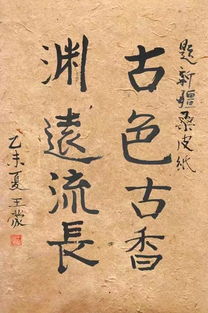 題新疆桑皮紙
古色古香
淵遠流長
乙未夏 王蒙